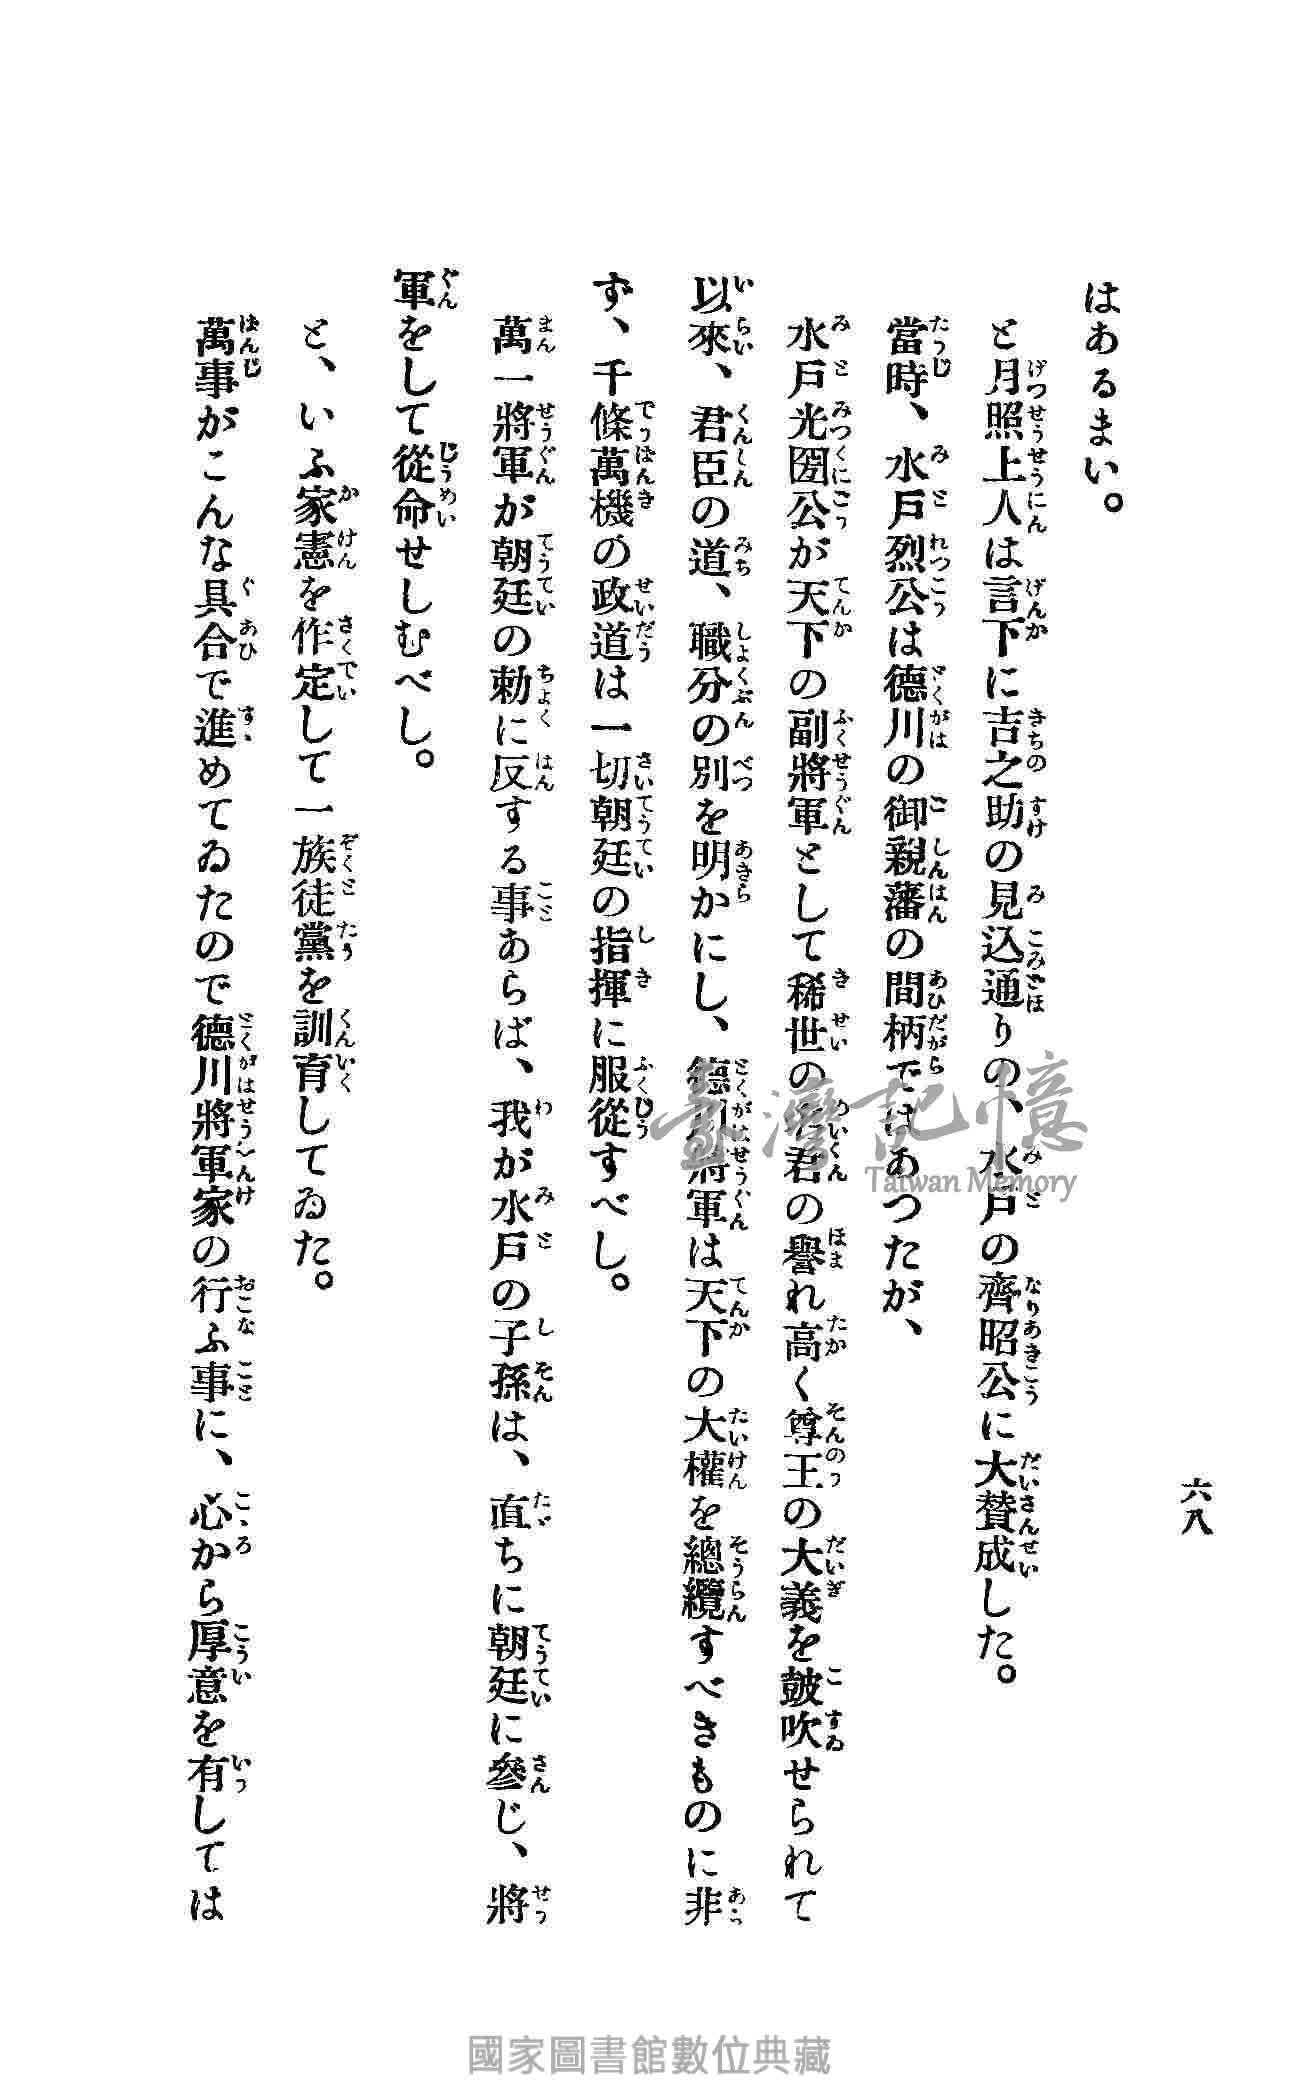 はあるまい。
と月照上人は言下に吉之助の見込通りの、水戶の齊昭公に大賛成した。
當時、水戶烈公は德川の御親藩の間柄ではあつたが、
水戶光圀公が天下の副將軍として稀世の名君の譽れ高く尊王の大義を鼓吹せられて
以來、君臣の道、職分の別を明かにし、德川將軍は天下の大權を總纜すべきものに非
ず、千條萬機の政道は一切朝廷の指揮に服從すべし。
萬一將軍が朝廷の勅に反する事あらば、我が水戶の子孫は、直ちに朝廷に參じ、將
軍をして從命せしむべし。
と、いふ家憲を作定して一族徒黨を訓育してゐた。
萬事がこんな具合で進めてゐたので德川將軍家の行ふ事に、心から厚意を有しては
六八
臺灣記憶
Taiwan Memory
國家圖書館數位典藏